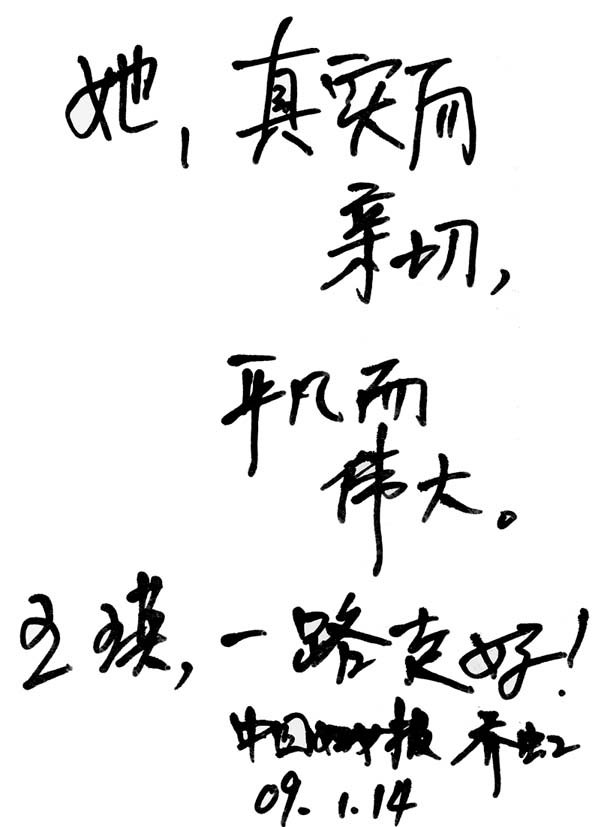 她,真实而
亲切,
平凡而
伟大。
王瑛,一路走好!
中国妇女报 乔虹
09.1.14